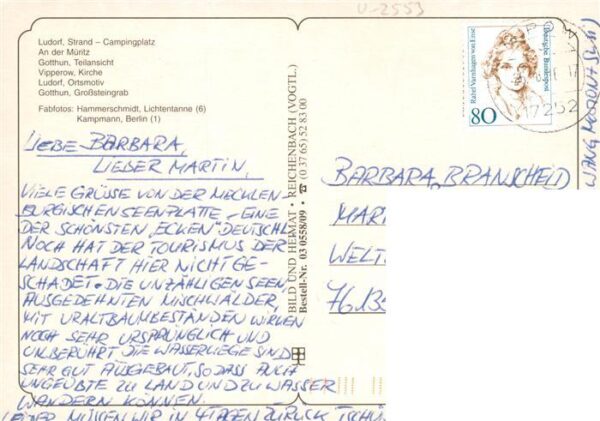 U-2553
Ludorf, Strand – Campingplatz
An der Müritz
Gotthun, Teilansicht
Vipperow, Kirche
Ludorf, Ortsmotiv
Gotthun, Großsteingrab
Fabfotos: Hammerschmidt, Lichtentanne (6)
Kampmann, Berlin (1)
LIEBE BARBARA,
LIEBER MARTIN,
VIELE GRÜSSE VON DER MECKLEN
BURGISCHEN SEENPLATTE – EINE
DER SCHÖNSTEN "ECKEN" DEUTSCHL
NOCH HAT DER TOURISMUS DER
LANDSCHAFT HIER NICHT GE-
SCHADET. DIE UNZÄHLIGEN SEEN,
AUSGEDEHNTEN MISCHWÄLDER,
MIT URALTBAUMBESTÄNDEN WIRKEN
NOCH SEHR URSPRÜNGLICH UND
UNBERÜHRT DIE WASSERWEGE SIND
SEHR GUT AUSGEBAUT, SODASS AUCH
UNGEÜBTE ZU LAND UND ZU WASSER
WANDERN KÖNNEN.
LEIDER MÜSSEN WIR IN 4 TAGEN ZURÜCK TSCHÜ
BILD UND HEIMAT • REICHENBACH (VOGTL.)
Bestell-Nr. 03 0558/09 • ☎ (0 37 65) 52 83 00
Rahel Varnhagen von Ense
Deutsche Bundespost
80
17252
BARBARA, BRANSCHEID
MART
WELT
76.135